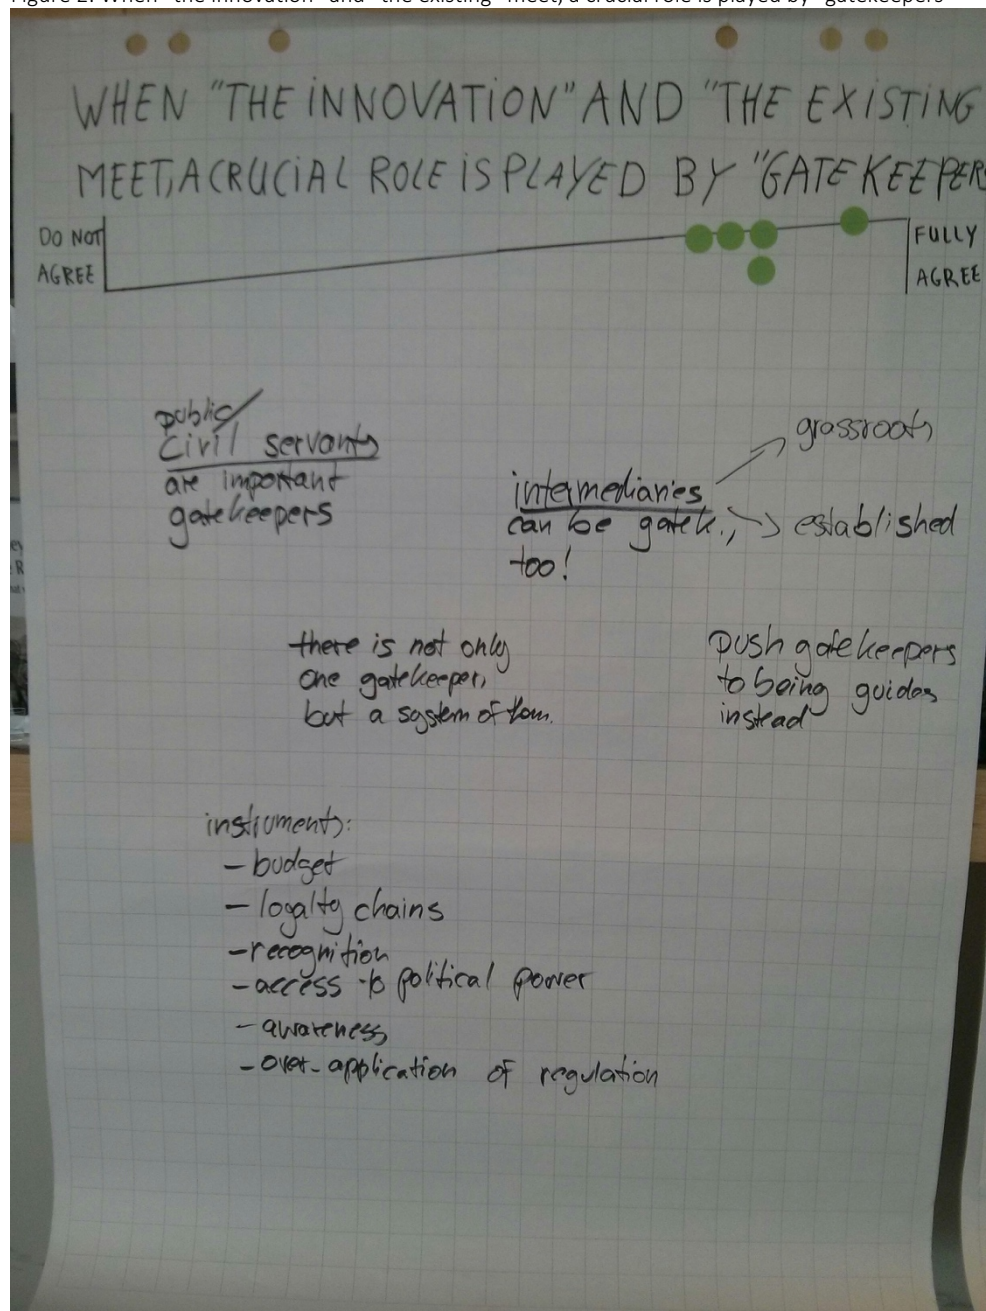 Figure 2: When "the innovation" and "the existing" meet, a crucial role is played by "gatekeepers"
WHEN "THE INNOVATION" AND "THE EXISTING
MEET, A CRUCIAL ROLE IS PLAYED BY "GATEKEEPER
DO NOT
AGREE
FULLY
AGREE
public/
civil servants
are important
gatekeepers
grassroots
intermediaries
can be gatek.,
too!
established
there is not only
one gatekeeper,
but a system of them.
push gatekeepers
to being guides
instead
instruments:
- budget
- loyalty chains
- recognition
- access to political power
- awareness
- over-application of regulation